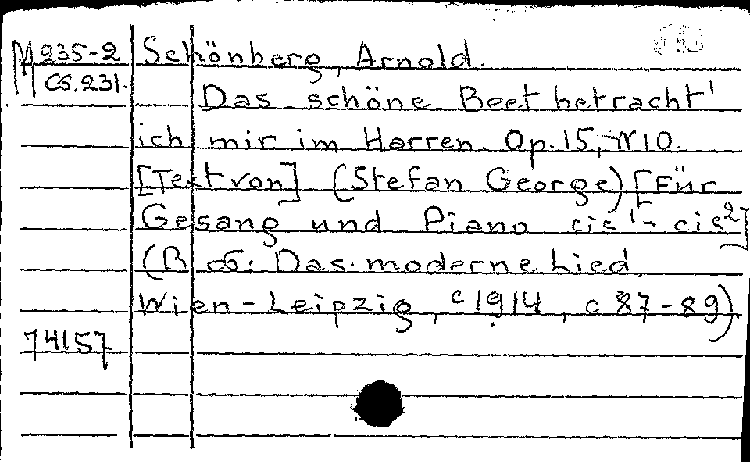 M 235-2 Schönberg, Arnold.
Сб.231.
Das schöne Beet betracht'
ich mir im Harren. Op. 15, N10.
[Text von] (Stefan George) [Für
Gesang und Piano cis¹- cis²]
(В сб: Das moderne Lied
Wien-Leipzig, c1914, c 87-89)
74157